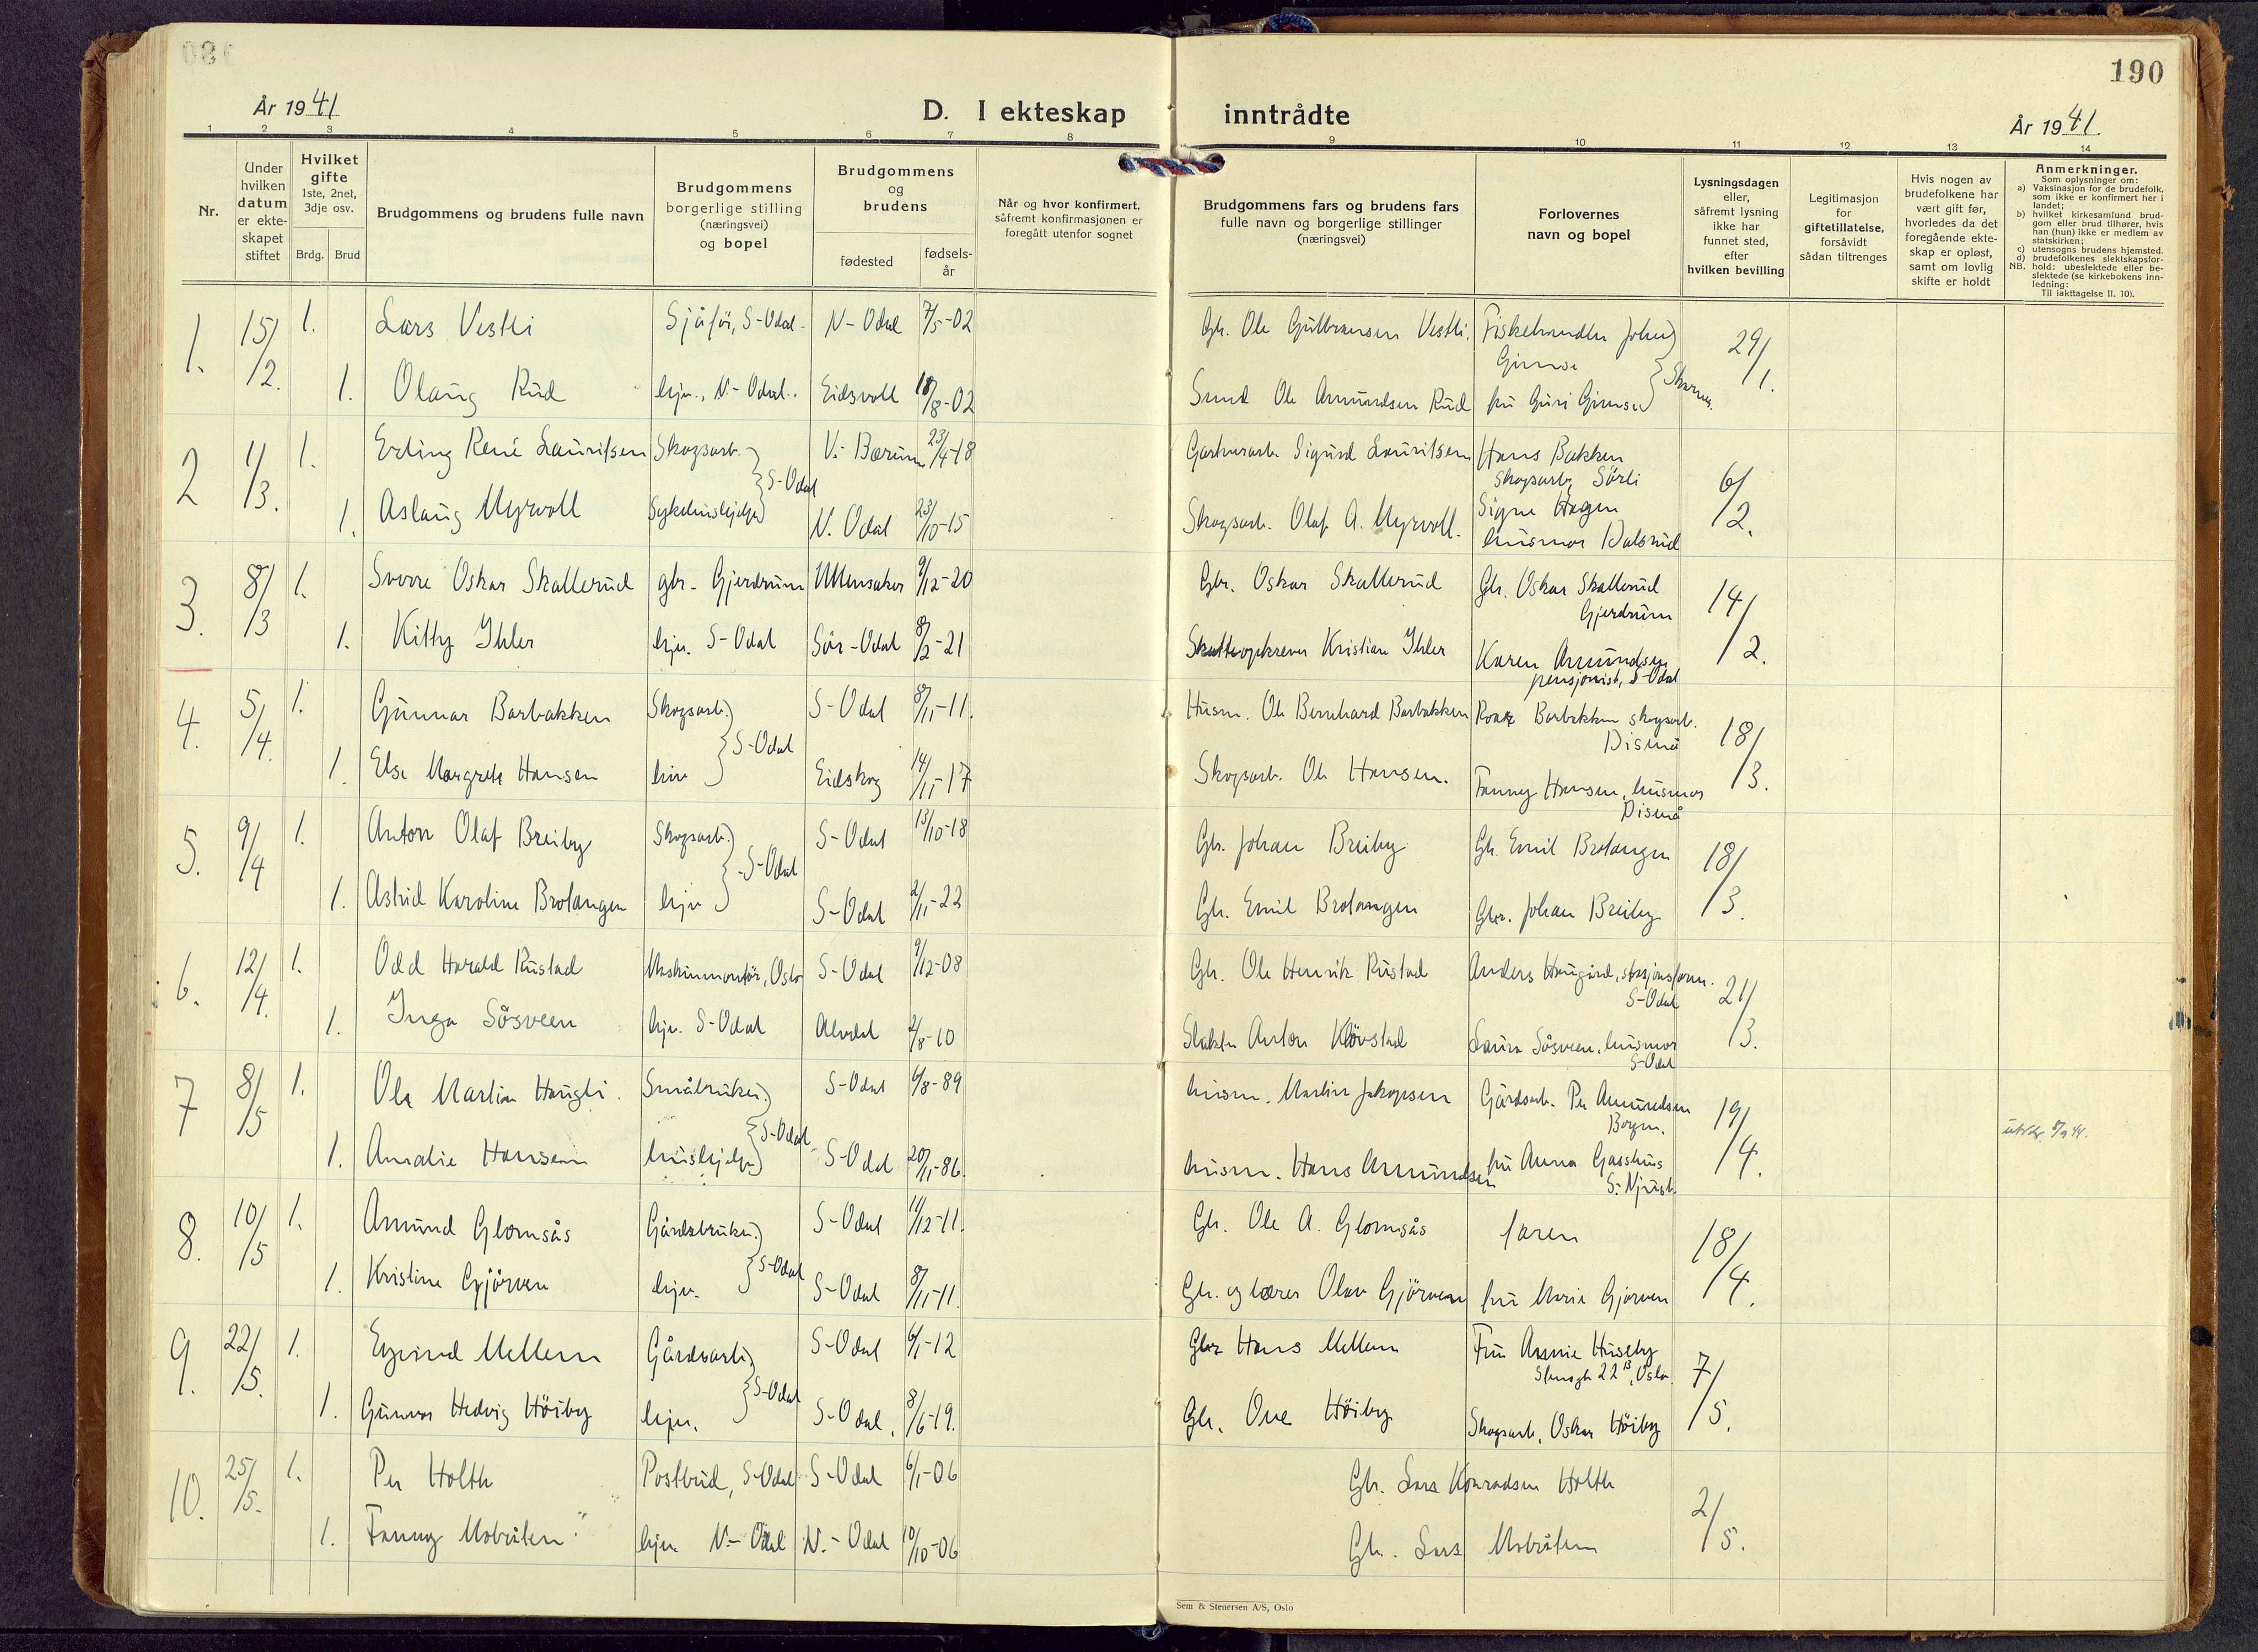 190
År 1941
D. I ekteskap inntrådte
År 1941.
1 2 3 4 5 6 7 8 9 10 11 12 13 14
Nr.
Under hvilken datum er ekteskapet stiftet
Hvilket gifte 1ste, 2net, 3dje osv.
Brdg. Brud
Brudgommens og brudens fulle navn
Brudgommens borgerlige stilling (næringsvei) og bopel
Brudgommens og brudens
fødested
fødsels-år
Når og hvor konfirmert, såfremt konfirmasjonen er foregått utenfor sognet
Brudgommens fars og brudens fars fulle navn og borgerlige stillinger (næringsvei)
Forlovernes navn og bopel
Lysningsdagen eller, såfremt lysning ikke har funnet sted, efter hvilken bevilling
Legitimasjon for giftetillatelse, forsåvidt sådan tiltrenges
Hvis nogen av brudefolkene har vært gift før, hvorledes da det foregående ekteskap er opløst, samt om lovlig skifte er holdt
Anmerkninger.
Som oplysninger om:
a) Vaksinasjon for de brudefolk, som ikke er konfirmert her i landet;
b) hvilket kirkesamfund brudgom eller brud tilhører, hvis han (hun) ikke er medlem av statskirken;
c) utensogns brudens hjemsted.
d) brudefolkenes slektskapsforhold: ubeslektede eller beslektede (se kirkebokens innledning:
NB.
Til iakttagelse II. 10).
1. 15/2. 1. Lars Vestli Sjåför, S-Odal N-Odal 7/5-02 Gbr. Ole Gulbransen Vestli. Fiskehandler Johan Gimse 29/1.
1. Olaug Rud hjv., N-Odal. Eidsvoll 18/8-02 Smed Ole Amundsen Rud fru Guri Gimse } Skarnes.
2 1/3. 1. Erling René Lauritsen Skogsarb. } S-Odal V. Bærum 23/4-18 Gartnerarb. Sigurd Lauritsen Hans Bakken skogsarb, Sörli 6/2.
1. Aslaug Myrvoll Sykehushjelp N. Odal 23/10-15 Skogsarb. Olaf A. Myrvoll. Signe Hagen husmor Dalsrud
3. 8/3 1. Sverre Oskar Skallerud gbr. Gjerdrum Ullensaker 9/12-20 Gbr. Oskar Skallerud Gbr. Oskar Skallerud Gjerdrum 14/2.
1. Kitty Ihler hjv. S-Odal Sör-Odal 8/2-21 Skatteopkrever Kristian Ihler Karen Amundsen pensjonist, S-Odal
4. 5/4. 1. Gunnar Barbakken Skogsarb. } S-Odal S-Odal 8/11-11. Husm. Ole Bernhard Barbakken Roar Barbakken skogsarb. Disená 18/3.
1. Else Margrete Hansen hjv Eidskog 14/11-17 Skogsarb. Ole Hansen. Fanny Hansen, husmor Disenå
5. 9/4 1. Anton Olaf Breiby Skogsarb. } S-Odal S-Odal 13/10-18 Gbr. Johan Breiby Gbr. Emil Brotangen 18/3.
1. Astrid Karoline Brotangen hjv S-Odal 2/11-22 Gbr. Emil Brotangen Gbr. Johan Breiby
6. 12/4. 1. Odd Harald Rustad Maskinmontör, Oslo S-Odal 9/12-08 Gbr. Ole Henrik Rustad Anders Haugård, stasjonsform. S-Odal 21/3.
1. Inga Såsveen hjv. S-Odal Alvdal 2/8-10 Slakter Anton Klövstad Laura Såsveen, husmor S-Odal
7 8/5 1. Ole Martin Haugli. Småbruker } S-Odal S-Odal 6/8-89 husm. Martin Jakopsen Gårdsarb. Per Amundsen 19/4.
1. Amalie Hansen hushjelp S-Odal 20/11-86 husm. Hans Amundsen fru Anna Gasshus
8. 10/5 1. Amund Glomsås Gårdsbruker } S-Odal S-Odal 11/12-11. Gbr. Ole A. Glomsås faren 18/4.
1. Kristine Gjörven hjv. S-Odal 8/11-11. Gbr. og lærer Olav Gjörven fru Marie Gjörven
9. 22/5. 1. Eyvind Mellem Gårdsarb. } S-Odal S-Odal 6/1-12 Gbr Hans Mellem Fru Annie Huseby 22 B, Oslo. 7/5.
1. Gunvor Hedvig Höiby hjv. S-Odal. 8/6-19. Gbr. Ove Höiby Skogsarb. Oskar Höiby
10. 25/5. 1. Per Holth Postbud, S-Odal S-Odal 6/1-06 Gbr. Lars Konradsen Holth 2/5.
1. Fanny Mobråten hjv. N-Odal N.-Odal 10/10-06 Gbr. Lars Mobråten
Sem & Stenersen A/S, Oslo